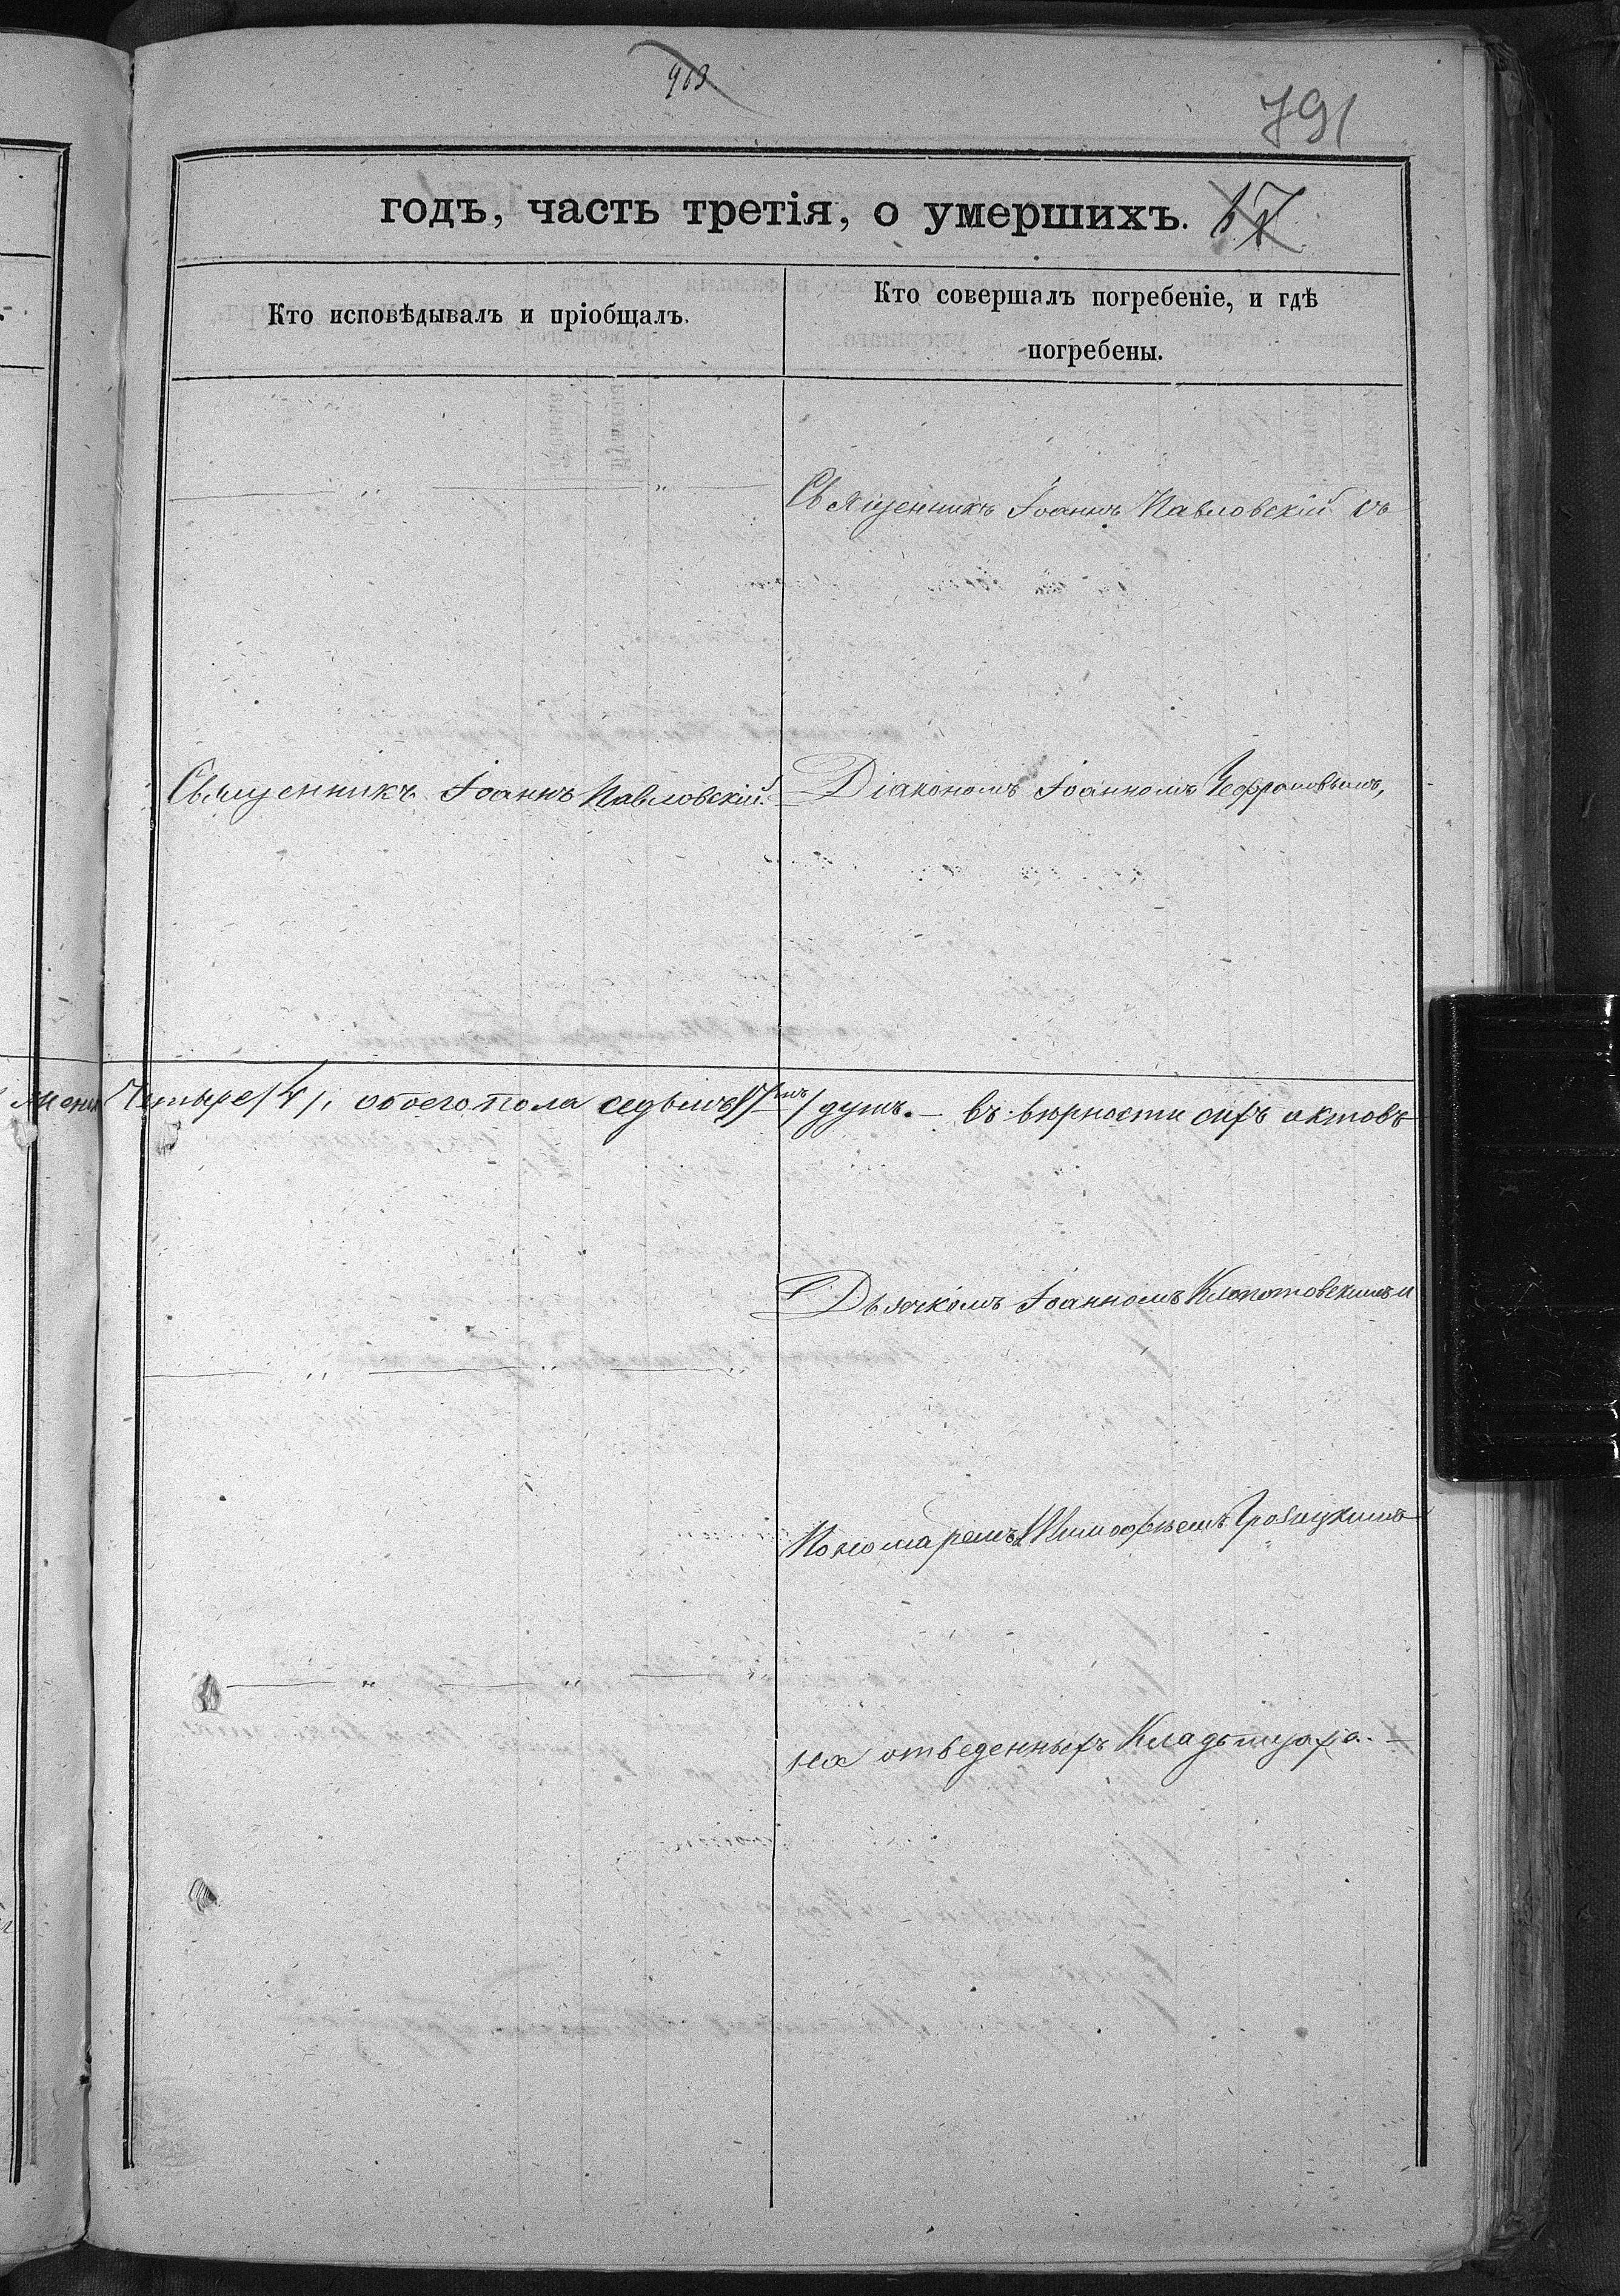 963
791
годъ, часть третія, о умершихъ. 17
Кто исповѣдывалъ и пріобщалъ.
Кто совершалъ погребеніе, и гдѣ
погребены.
Священникъ Іоаннъ Павловскій съ
Священникъ Іоаннъ Павловскій.
Діакономъ Іоанномъ
Четыре /4/, обоего пола седьмъ /7мъ/ душъ. – въ вѣрности сихъ актовъ
Дьячкомъ Іоанномъ Клопотовскимъ и
Пономаремъ Тимофѣемъ Гробицкимъ
на отведенныхъ Кладбищахъ. –